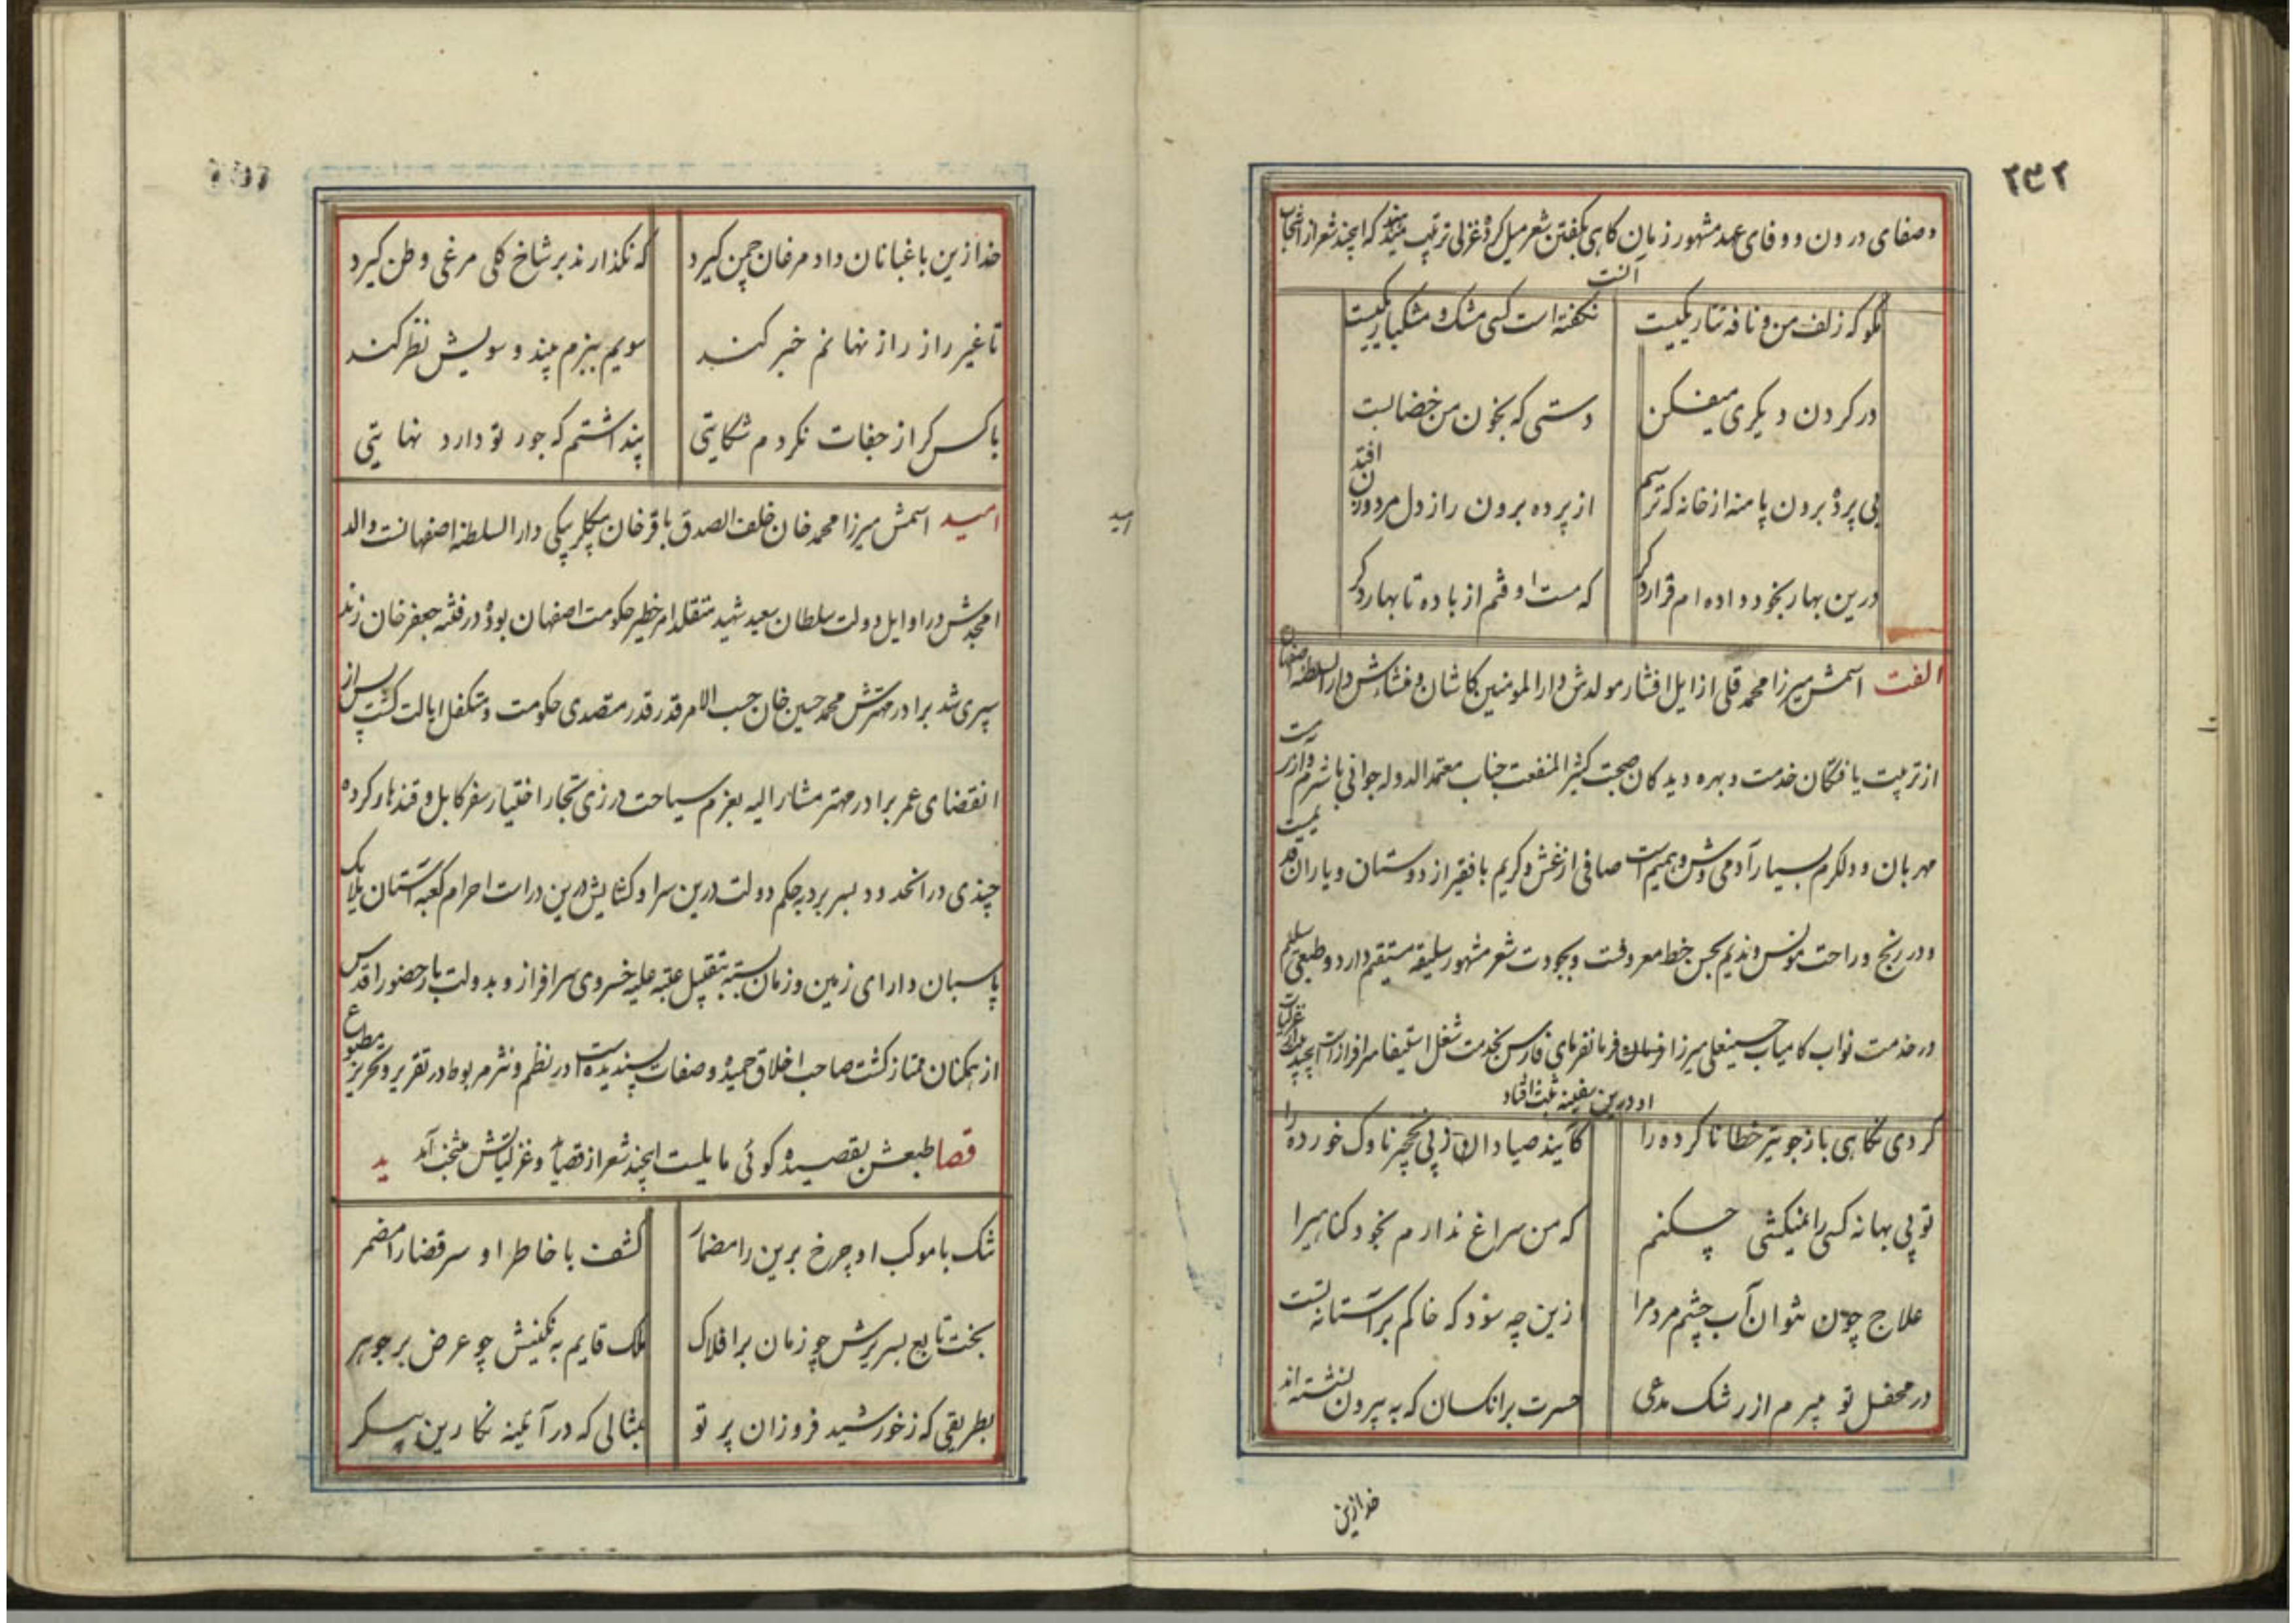 ۲۳۲
وصفای درون و وفای عهد مشهور زمان کاهی بکفتن شعر میل کرده غزلی ترتیب میدهد که اینچند شعر از انتخاب
است
مکو که زلف من و نافه تتار یکیست
نکفته است کسی مشک و مشکبار یکیست
در کردن دیکری میفکن
دستی که بخون من خضابست
بی پرده برون پا منه از خانه که ترسم
از پرده برون راز دل مرد و زن افتد
درین بهار بخود داده ام قرار دکر
که مست اوفتم از باده تا بهار دکر
الفت اسمش میرزا محمد قلی از ایل افشار مولدش دارالمومنین کاشان و منشاءش دارالسلطنه اصفهان
از تربیت یافتکان خدمت و بهره دیدکان صحبت کثیر المنفعت جناب معتمدالدوله جوانی با شرم و آزرمست
مهربان و دلکرم بسیار آدمی وش و بهیم است صافی از غش و کریم با فقیر از دوستان و یاران قدیمیست
و در رنج و راحت مونس و ندیم بحسن خط معروفست و بجودت شعر مشهور سلیقه مستقیم دارد و طبعی سلیم
در خدمت نواب کامیاب حسینعلی میرزا فرمان فرمانفرمای فارس بخدمت شغل استیفا سرافراز است اینچند غزلیات
او درین سفینه ثبت افتاد
کردی نکاهی باز جو تیر خطا ناکرده را
کآیند صیادان ز پی نخچیر ناوک خورده را
تو بی بهانه کسی را نمیکشی چکنم
که من سراغ ندارم بخود کناهیرا
علاج چون نتوان آب چشم مردمرا
ازین چه سود که خاکم بر آستانه تست
در محفل تو میرم از رشک مدعی
حسرت بر انکسان که به بیرون نشسته اند
خدا ازین
خدا ازین باغبانان داد مرغان چمن کیرد
که نکذارند بر شاخ کلی مرغی وطن کیرد
تا غیر را ز راز نهانم خبر کند
سویم ببزم بیند و سویش نظر کند
با کس کر از جفات نکردم شکایتی
پنداشتم که جور تو دارد نهایتی
امید
امید اسمش میرزا محمد خان خلف الصدق باقر خان بیکلر بیکی دارالسلطنه اصفهانست والد
امجدش در اوایل دولت سلطان سعید شهید متقلد امر خطیر حکومت اصفهان بوده در فتنه جعفر خان زند
سپری شد برادر مهترش محمد حسین خان حسب الامر قدر قدر متصدی حکومت و متکفل ایالت کشت پس از
انقضای عمر برادر مهتر مشار الیه بعزم سیاحت در زی تجار اختیار سفر کابل و قندهار کرده
چندی در انحدود بسر برد بحکم دولت درین سرا و کشایش درین دراست احرام کعبه آستان ملایک
پاسبان دارای زمین و زمان بسته بتقبیل عتبه علیه خسروی سرافراز و بدولت بار حضور اقدس
از همکنان ممتاز کشت صاحب اخلاق حمیده و صفات پسندیده است در نظم و نثر مربوط در تقریر و تحریر مطبوع
قصا طبعش بقصیده کوئی مایلست اینچند شعر از قصاید و غزلیاتش منتخب آمد ید
تنک با موکب او چرخ برین را مضمار
کشف با خاطر او سر قضا را مضمر
بخت تابع بسریرش چو زمان بر افلاک
ملک قایم به نکینش چو عرض بر جوهر
بطریقی که ز خورشید فروزان پرتو
بمثالی که در آئینه نکارین پیکر